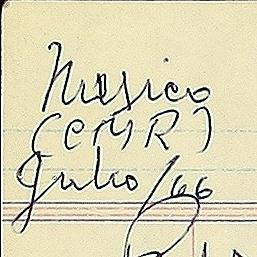 Musico
(CMR)
Julio/66